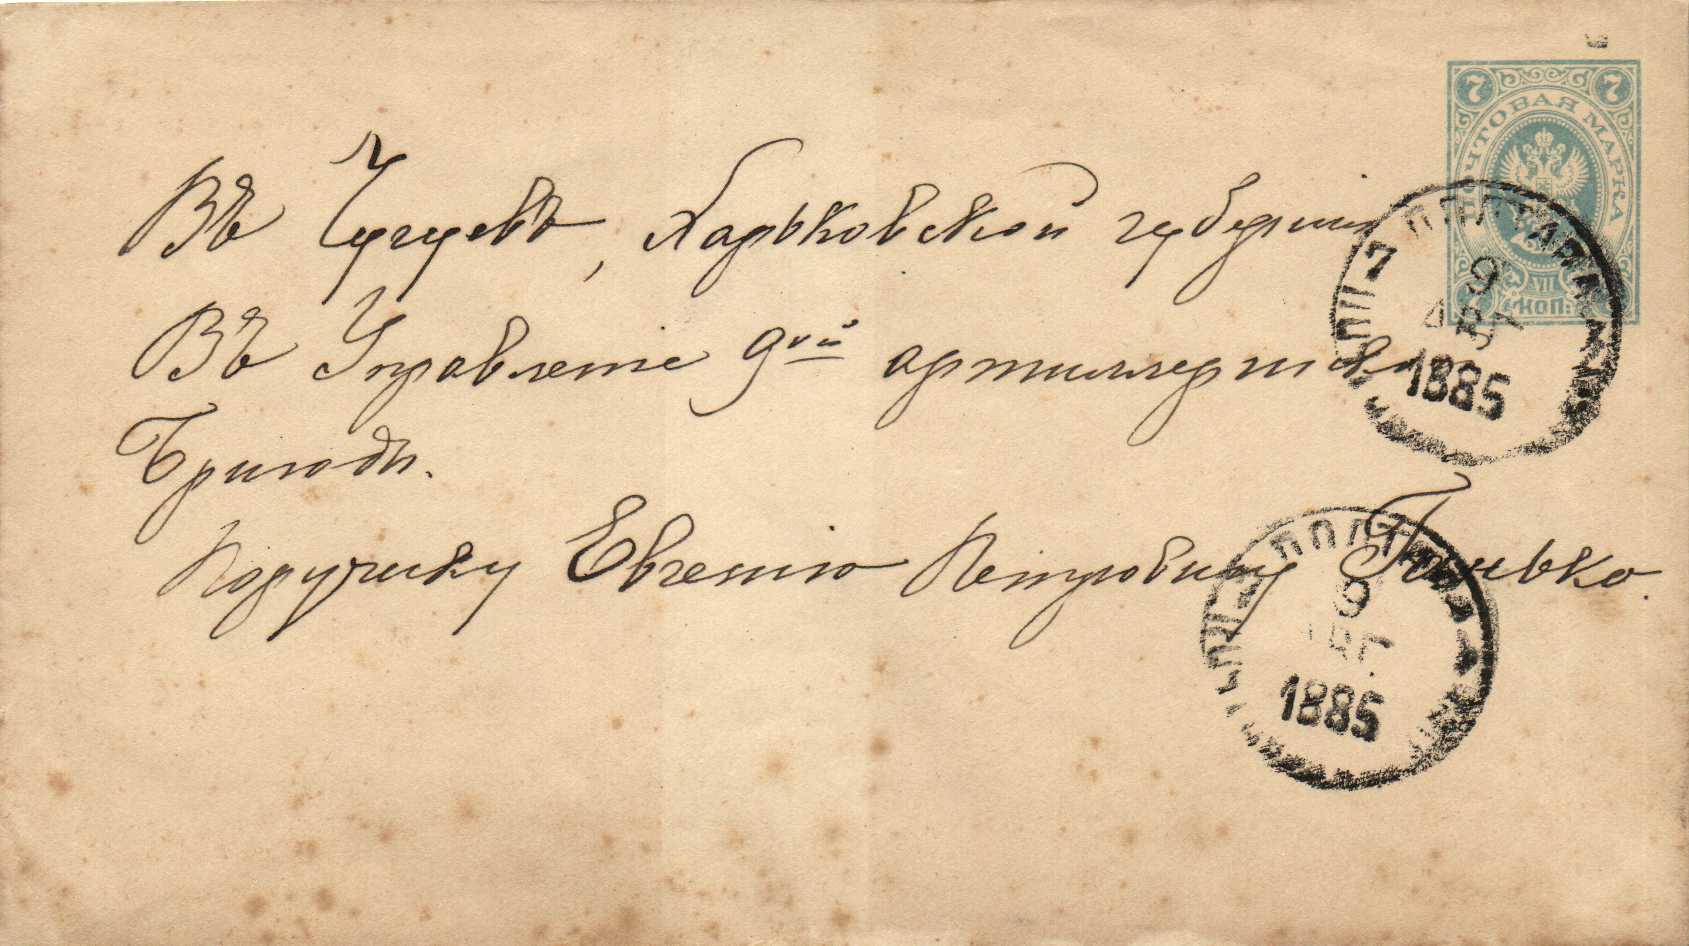 7 7
ПОЧТОВАЯ МАРКА
7 КОП. 7
Въ Чугуевъ, Харьковской губернии
Въ Управленіе 9ой артиллерійской
Бригады.
Поручику Евгенію Петровичу Гонько.
ПОЛТАВА
7
9
АВГ
1885
ПОЛТАВА
7
9
АВГ.
1885